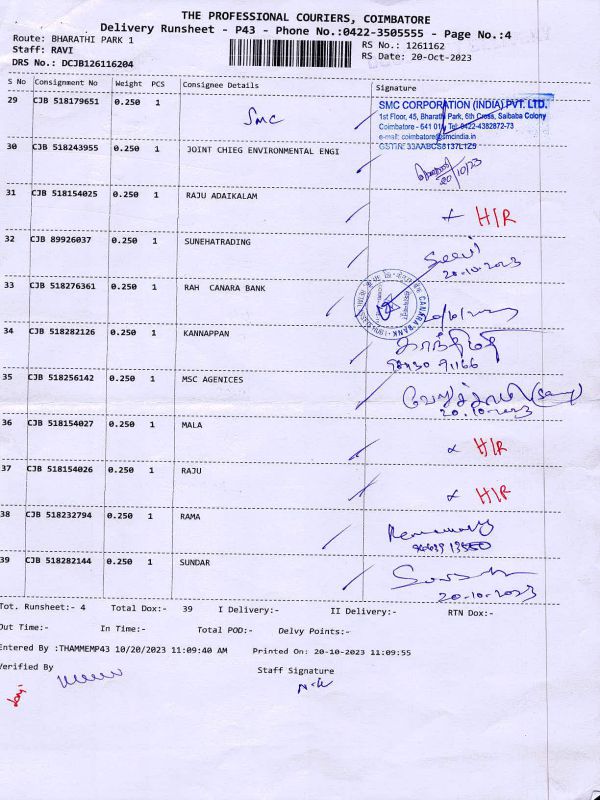 THE PROFESSIONAL COURIERS, COIMBATORE
Delivery Runsheet - P43 - Phone No.:0422-3505555 - Page No.:4
Route: BHARATHI PARK 1 RS No.: 1261162
Staff: RAVI RS Date: 20-Oct-2023
DRS No.: DCJB126116204
S No Consignment No Weight PCS Consignee Details Signature
29 CJB 518179651 0.250 1 SMC
SMC CORPORATION (INDIA) PVT. LTD.
1st Floor, 45, Bharathi Park, 6th Cross, Saibaba Colony
Coimbatore - 641 011, Tel: 0422-4382872-73
e-mail: coimbatore@smcindia.in
30 CJB 518243955 0.250 1 JOINT CHIEG ENVIRONMENTAL ENGI
20/10/23
31 CJB 518154025 0.250 1 RAJU ADAIKALAM H/R
32 CJB 89926037 0.250 1 SUNEHATRADING
20.10.2023
33 CJB 518276361 0.250 1 RAH CANARA BANK
CANARA BANK
34 CJB 518282126 0.250 1 KANNAPPAN
35 CJB 518256142 0.250 1 MSC AGENICES
20.10.2023
36 CJB 518154027 0.250 1 MALA H/R
37 CJB 518154026 0.250 1 RAJU H/R
38 CJB 518232794 0.250 1 RAMA
39 CJB 518282144 0.250 1 SUNDAR
20.10.2023
Tot. Runsheet:- 4 Total Dox:- 39 I Delivery:- II Delivery:- RTN Dox:-
Out Time:- In Time:- Total POD:- Delvy Points:-
Entered By :THAMMEMP43 10/20/2023 11:09:40 AM Printed On: 20-10-2023 11:09:55
Verified By Staff Signature